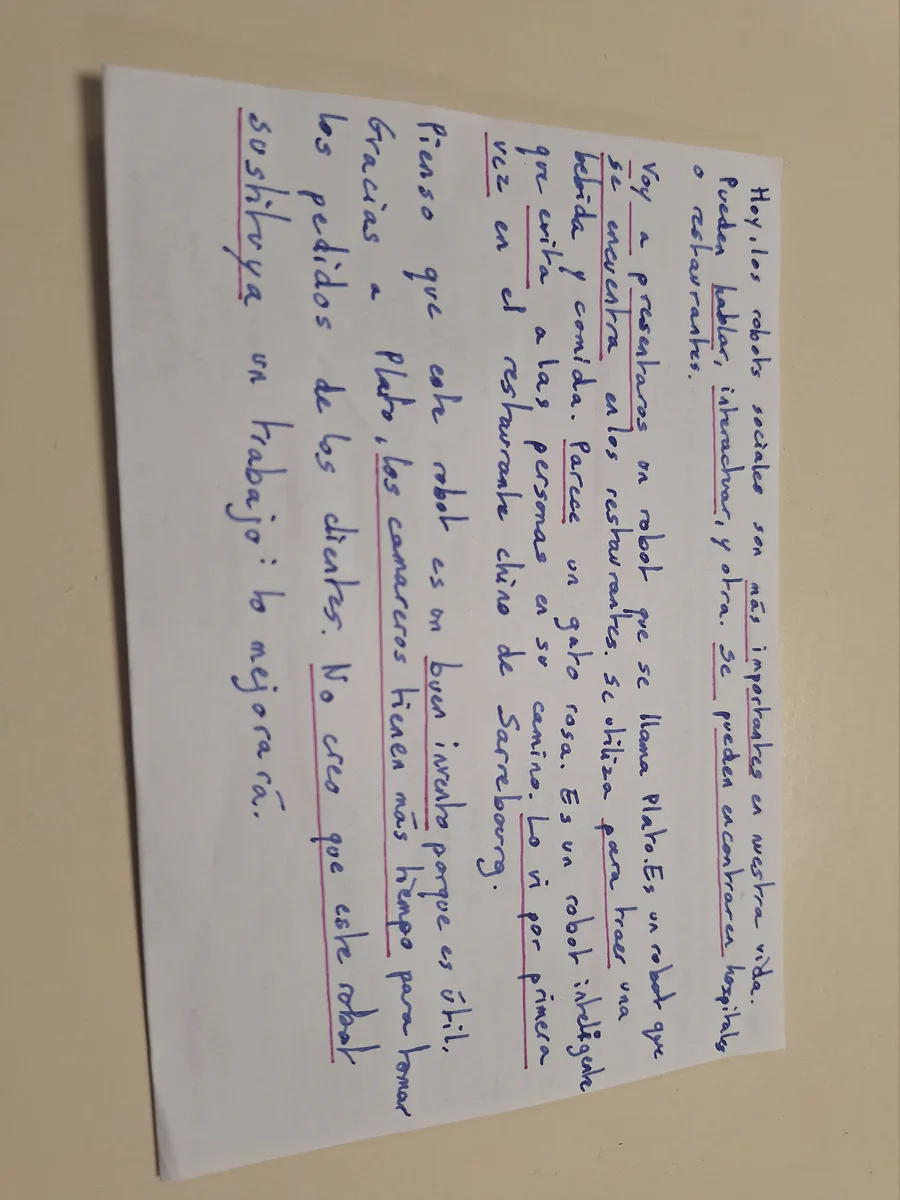 Hoy, los robots sociales son más importantes en nuestra vida.
Pueden hablar, interactuar, y otra. Se pueden encontrar en hospitales
o restaurantes.
Voy a presentaros un robot que se llama Plato. Es un robot que
se encuentra en los restaurantes. Se utiliza para traer una
bebida y comida. Parece un gato rosa. Es un robot inteligente
que evita a las personas en su camino. Lo vi por primera
vez en el restaurante chino de Sarrebourg.
Pienso que este robot es un buen invento porque es útil,
Gracias a Plato, los camareros tienen más tiempo para tomar
los pedidos de los clientes. No creo que este robot
sustituya un trabajo: lo mejorará.